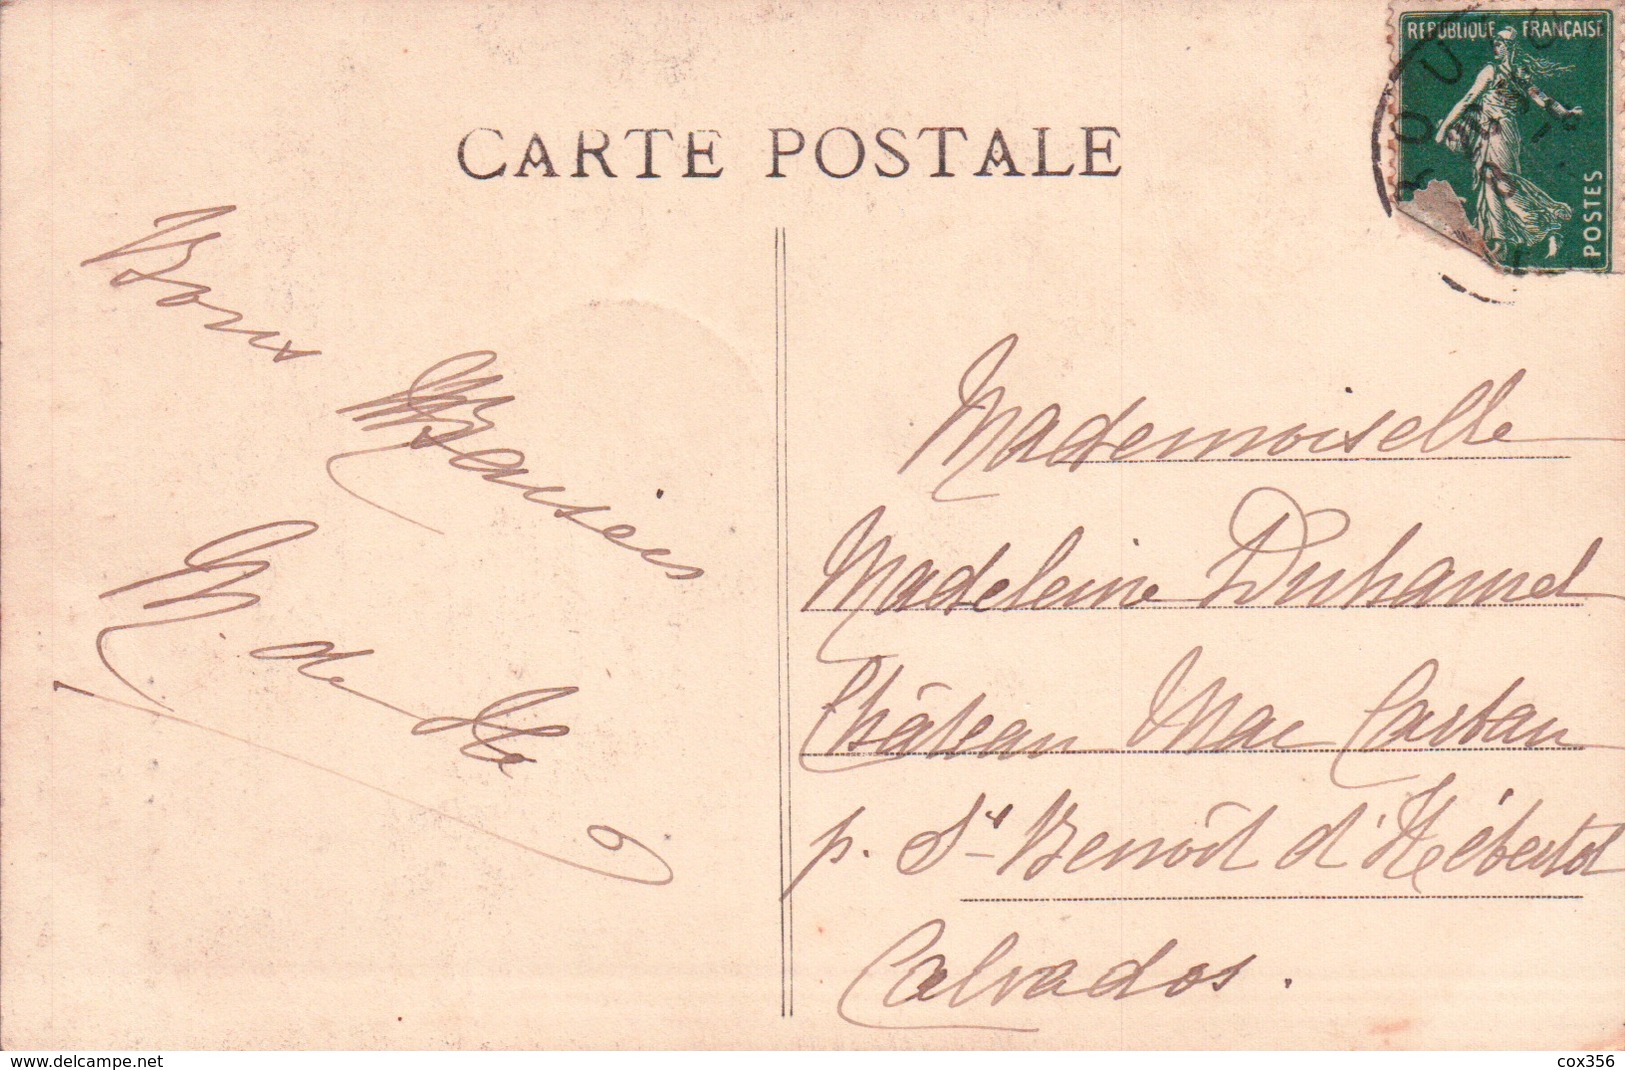 CARTE POSTALE
RÉPUBLIQUE FRANÇAISE
POSTES
Bons
Baisers
M. de
Mademoiselle
Madeleine Duhamel
Château Mac Cartan
p. St Benoît d'Hébertot
Calvados.
www.delcampe.net
cox356